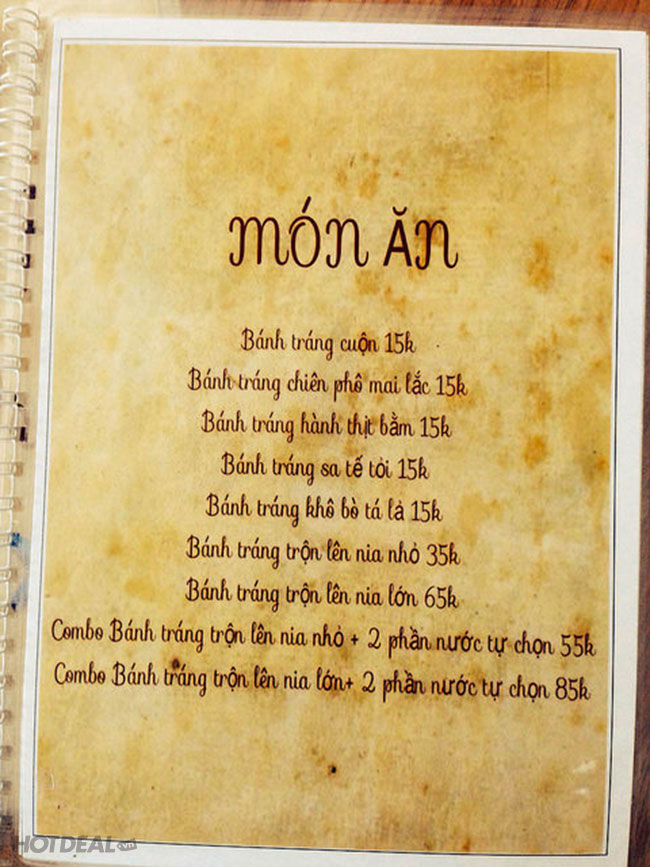 MÓN ĂN
Bánh tráng cuộn 15k
Bánh tráng chiên phô mai lắc 15k
Bánh tráng hành thịt bằm 15k
Bánh tráng sa tế tỏi 15k
Bánh tráng khô bò tá lả 15k
Bánh tráng trộn lên nia nhỏ 35k
Bánh tráng trộn lên nia lớn 65k
Combo Bánh tráng trộn lên nia nhỏ + 2 phần nước tự chọn 55k
Combo Bánh tráng trộn lên nia lớn+ 2 phần nước tự chọn 85k
HOTDEAL.vn